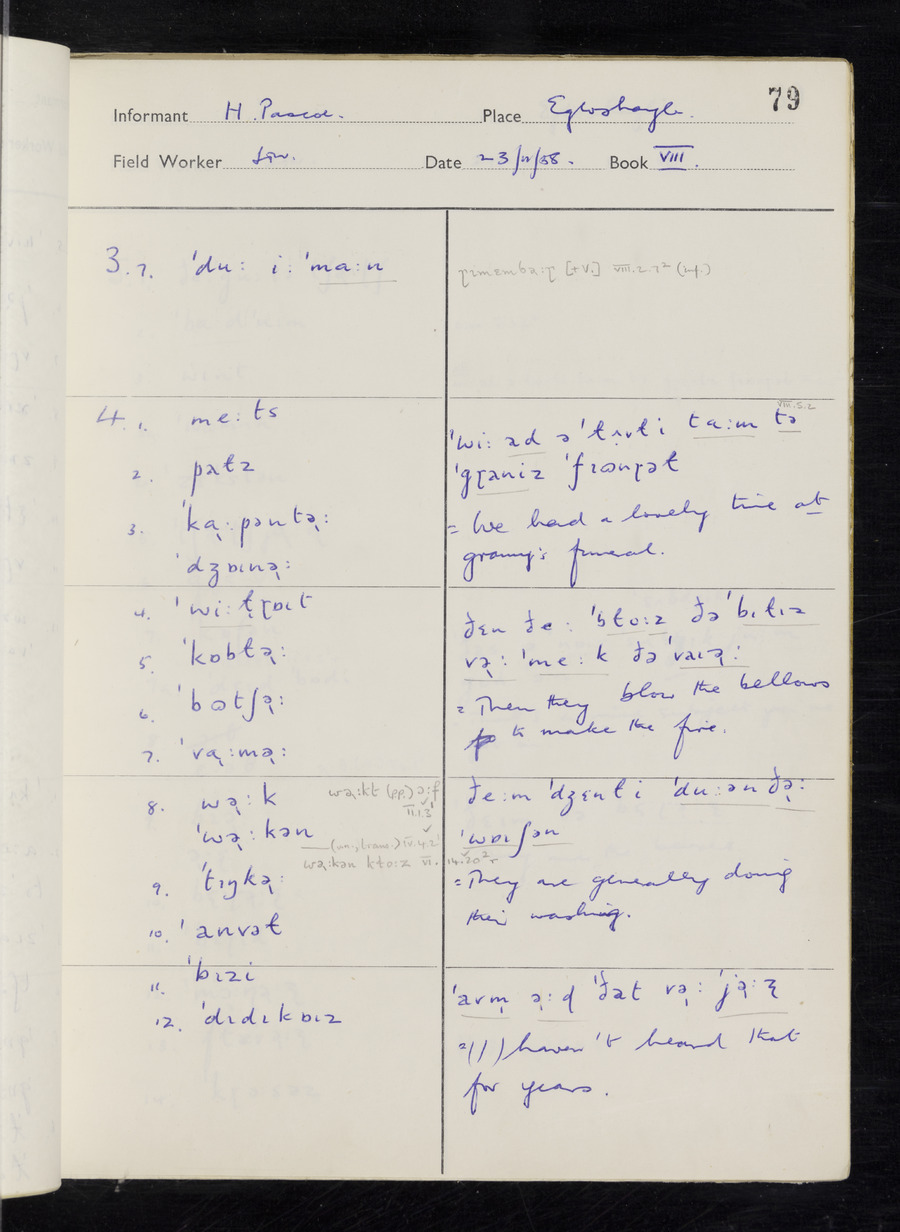 79
Informant H. Pascoe. Place Egloshayle.
Field Worker Date 23/11/58. Book VIII.
3. 7. ˈduː iː ˈmaːn
[+V.] VIII.2.7² (inf.)
4. 1. meːts
2. pɑtz
3. ˈkɑ̣ːpəntə̣ː
ˈdʒɒɪnə̣ː
4. ˈwiːtɽɒɪt
5. ˈkɒbtə̣ː
6. ˈbɷtʃə̣ː
7. ˈvɑ̣ːmə̣ː
8. wə̣ːk
ˈwə̣ːkən
wə̣ːkt (pp.)
II.1.3
(un., trans.) IV.4.2
wə̣ːkən ktoːz VI.14.20²
9. ˈtɪykə̣ː
10. ˈanvət
11. ˈbɪzi
12. ˈdɪdɪkɒɪz
VIII.5.2
ˈwiː ad ə ˈtʌvti taːm tə
ˈgɽaniz
= We had a lovely time at
granny's funeral.
ðɛn ðeː ˈbtoːz ðə ˈbɪtɪz
və̣ː ˈmeːk ðə ˈvaɪə̣ː
= Then they blow the bellows
to make the fire.
ðeːm ˈdʒɛnti ˈduːən ðə̣ː
ˈwɒɪʃən
= They are generally doing
their washing.
ˈavm̩ ə̣ːɖ ˈðat və̣ː ˈjə̣ːʐ
= (I) haven't heard that
for years.